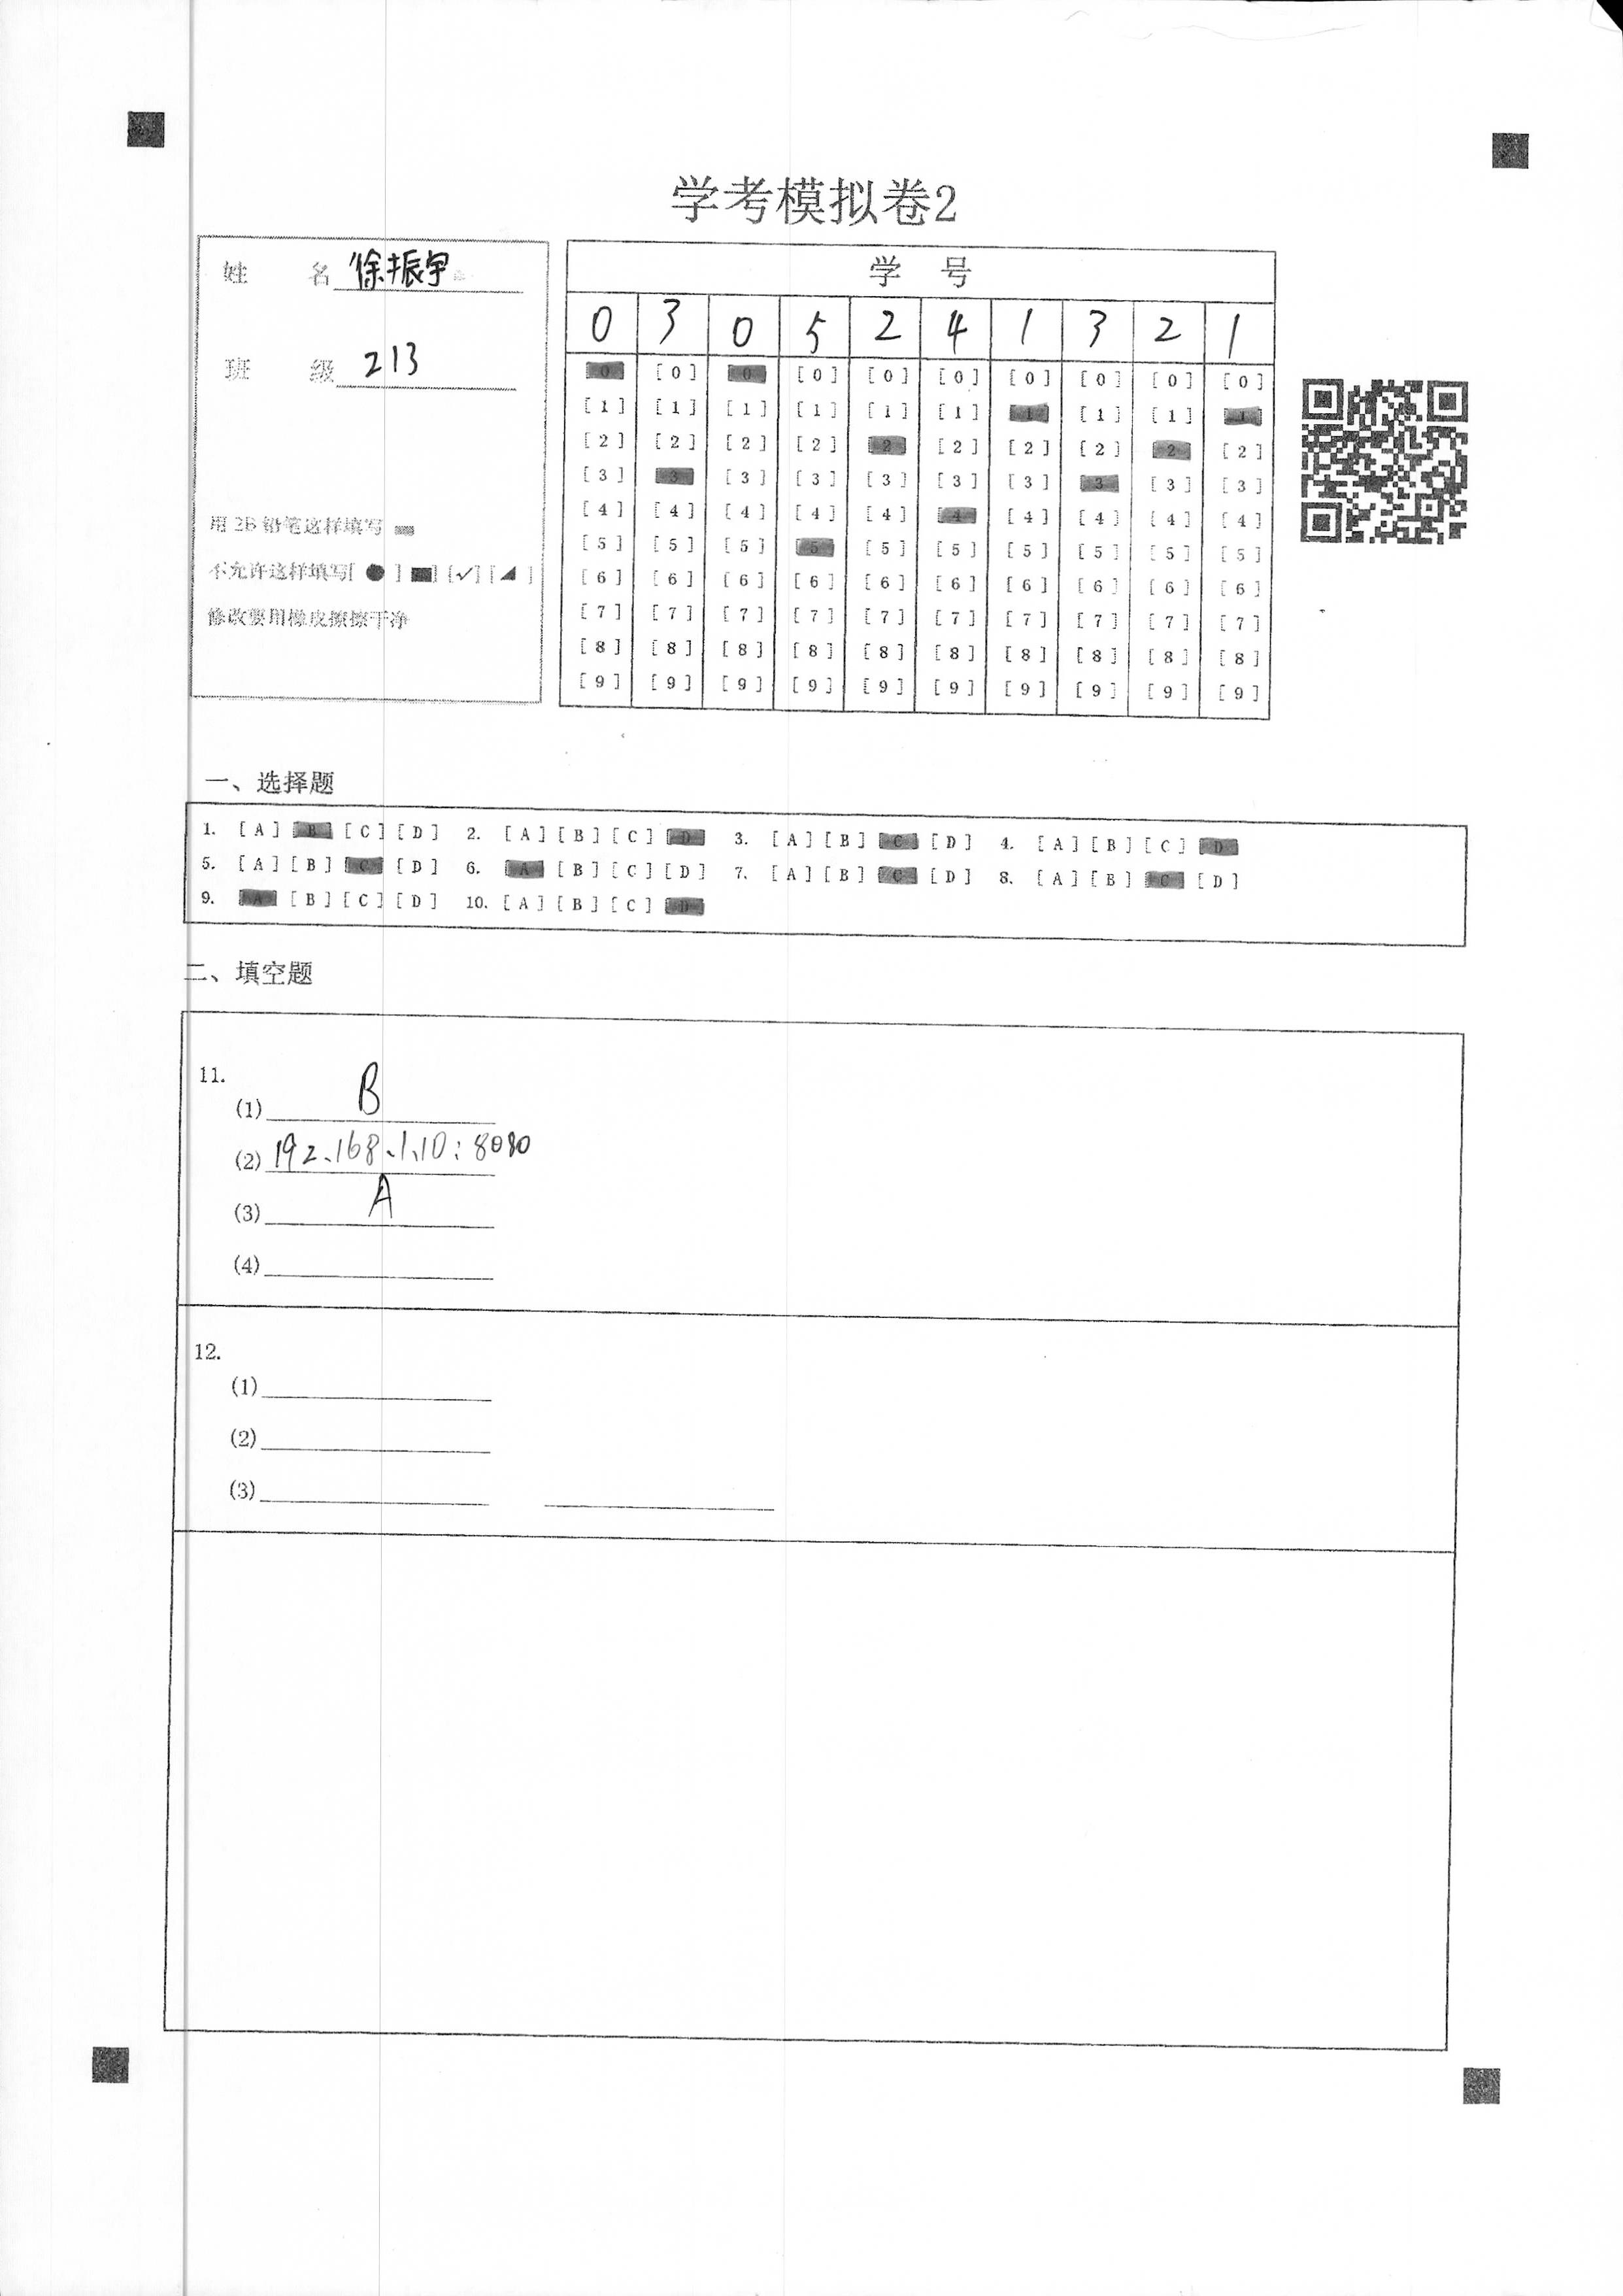 学考模拟卷2
姓 名 徐振宇
班 级 213
用 2B 铅笔这样填写
不允许这样填写[ ● ] [■] [✓] [◢ ]
修改要用橡皮擦擦干净
学 号
0 3 0 5 2 4 1 3 2 1
[0] [0] [0] [0] [0] [0] [0] [0] [0] [0]
[1] [1] [1] [1] [1] [1] [1] [1] [1] [1]
[2] [2] [2] [2] [2] [2] [2] [2] [2] [2]
[3] [3] [3] [3] [3] [3] [3] [3] [3] [3]
[4] [4] [4] [4] [4] [4] [4] [4] [4] [4]
[5] [5] [5] [5] [5] [5] [5] [5] [5] [5]
[6] [6] [6] [6] [6] [6] [6] [6] [6] [6]
[7] [7] [7] [7] [7] [7] [7] [7] [7] [7]
[8] [8] [8] [8] [8] [8] [8] [8] [8] [8]
[9] [9] [9] [9] [9] [9] [9] [9] [9] [9]
一、选择题
1. [A] [B] [C] [D] 2. [A] [B] [C] [D] 3. [A] [B] [C] [D] 4. [A] [B] [C] [D]
5. [A] [B] [C] [D] 6. [A] [B] [C] [D] 7. [A] [B] [C] [D] 8. [A] [B] [C] [D]
9. [A] [B] [C] [D] 10. [A] [B] [C] [D]
二、填空题
11.
(1) B
(2) 192.168.1.10:8080
(3) A
(4)
12.
(1)
(2)
(3)